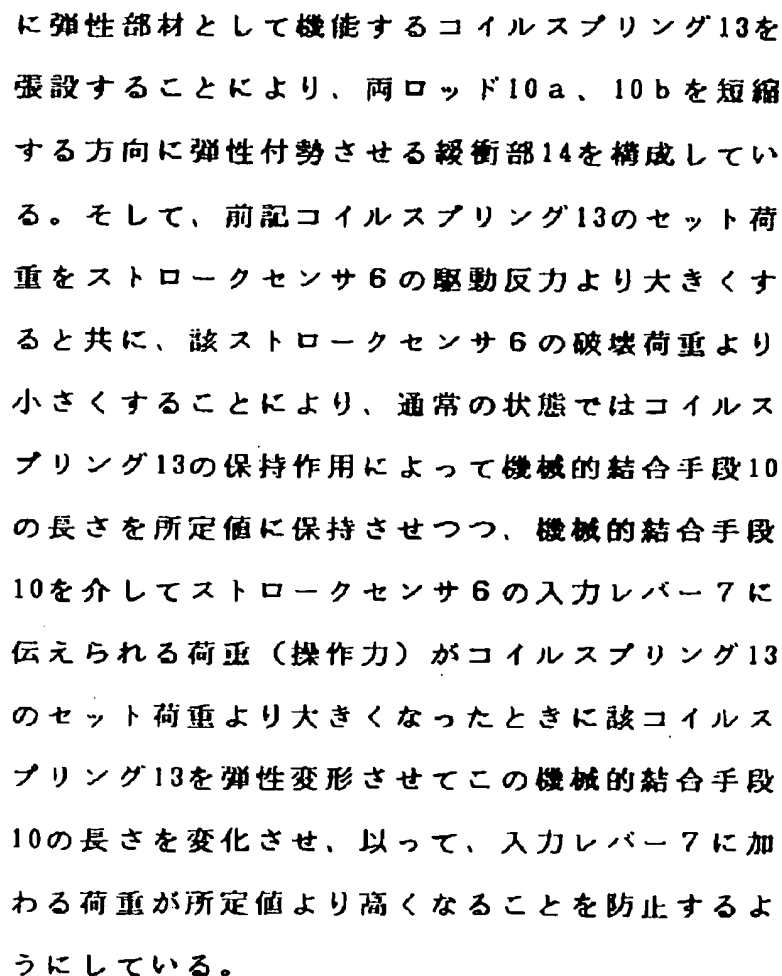 に弾性部材として機能するコイルスプリング13を
張設することにより、両ロッド10a、10bを短縮
する方向に弾性付勢させる緩衝部14を構成してい
る。そして、前記コイルスプリング13のセット荷
重をストロークセンサ6の駆動反力より大きくす
ると共に、該ストロークセンサ6の破壊荷重より
小さくすることにより、通常の状態ではコイルス
プリング13の保持作用によって機械的結合手段10
の長さを所定値に保持させつつ、機械的結合手段
10を介してストロークセンサ6の入力レバー7に
伝えられる荷重(操作力)がコイルスプリング13
のセット荷重より大きくなったときに該コイルス
プリング13を弾性変形させてこの機械的結合手段
10の長さを変化させ、以って、入力レバー7に加
わる荷重が所定値より高くなることを防止するよ
うにしている。